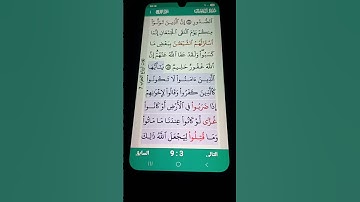 ٱلصُّدُورِ ۝ إِنَّ ٱلَّذِينَ تَوَلَّوۡاْ
مِنكُمۡ يَوۡمَ ٱلۡتَقَى ٱلۡجَمۡعَانِ إِنَّمَا
ٱسۡتَزَلَّهُمُ ٱلشَّيۡطَٰنُ بِبَعۡضِ مَا
كَسَبُواْۖ وَلَقَدۡ عَفَا ٱللَّهُ عَنۡهُمۡۗ إِنَّ
ٱللَّهَ غَفُورٌ حَلِيمٞ ۝ يَٰٓأَيُّهَا
ٱلَّذِينَ ءَامَنُواْ لَا تَكُونُواْ
كَٱلَّذِينَ كَفَرُواْ وَقَالُواْ لِإِخۡوَٰنِهِمۡ
إِذَا ضَرَبُواْ فِي ٱلۡأَرۡضِ أَوۡ كَانُواْ
غُزّٗى لَّوۡ كَانُواْ عِندَنَا مَا مَاتُواْ
وَمَا قُتِلُواْ لِيَجۡعَلَ ٱللَّهُ ذَٰلِكَ
التالى 9:3 السابق